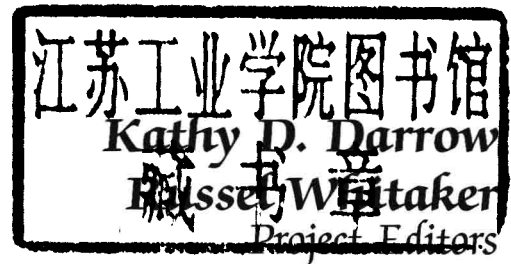 江苏工业学院图书馆
Kathy D. Darrow
藏书章
Russel Whitaker
Project Editors